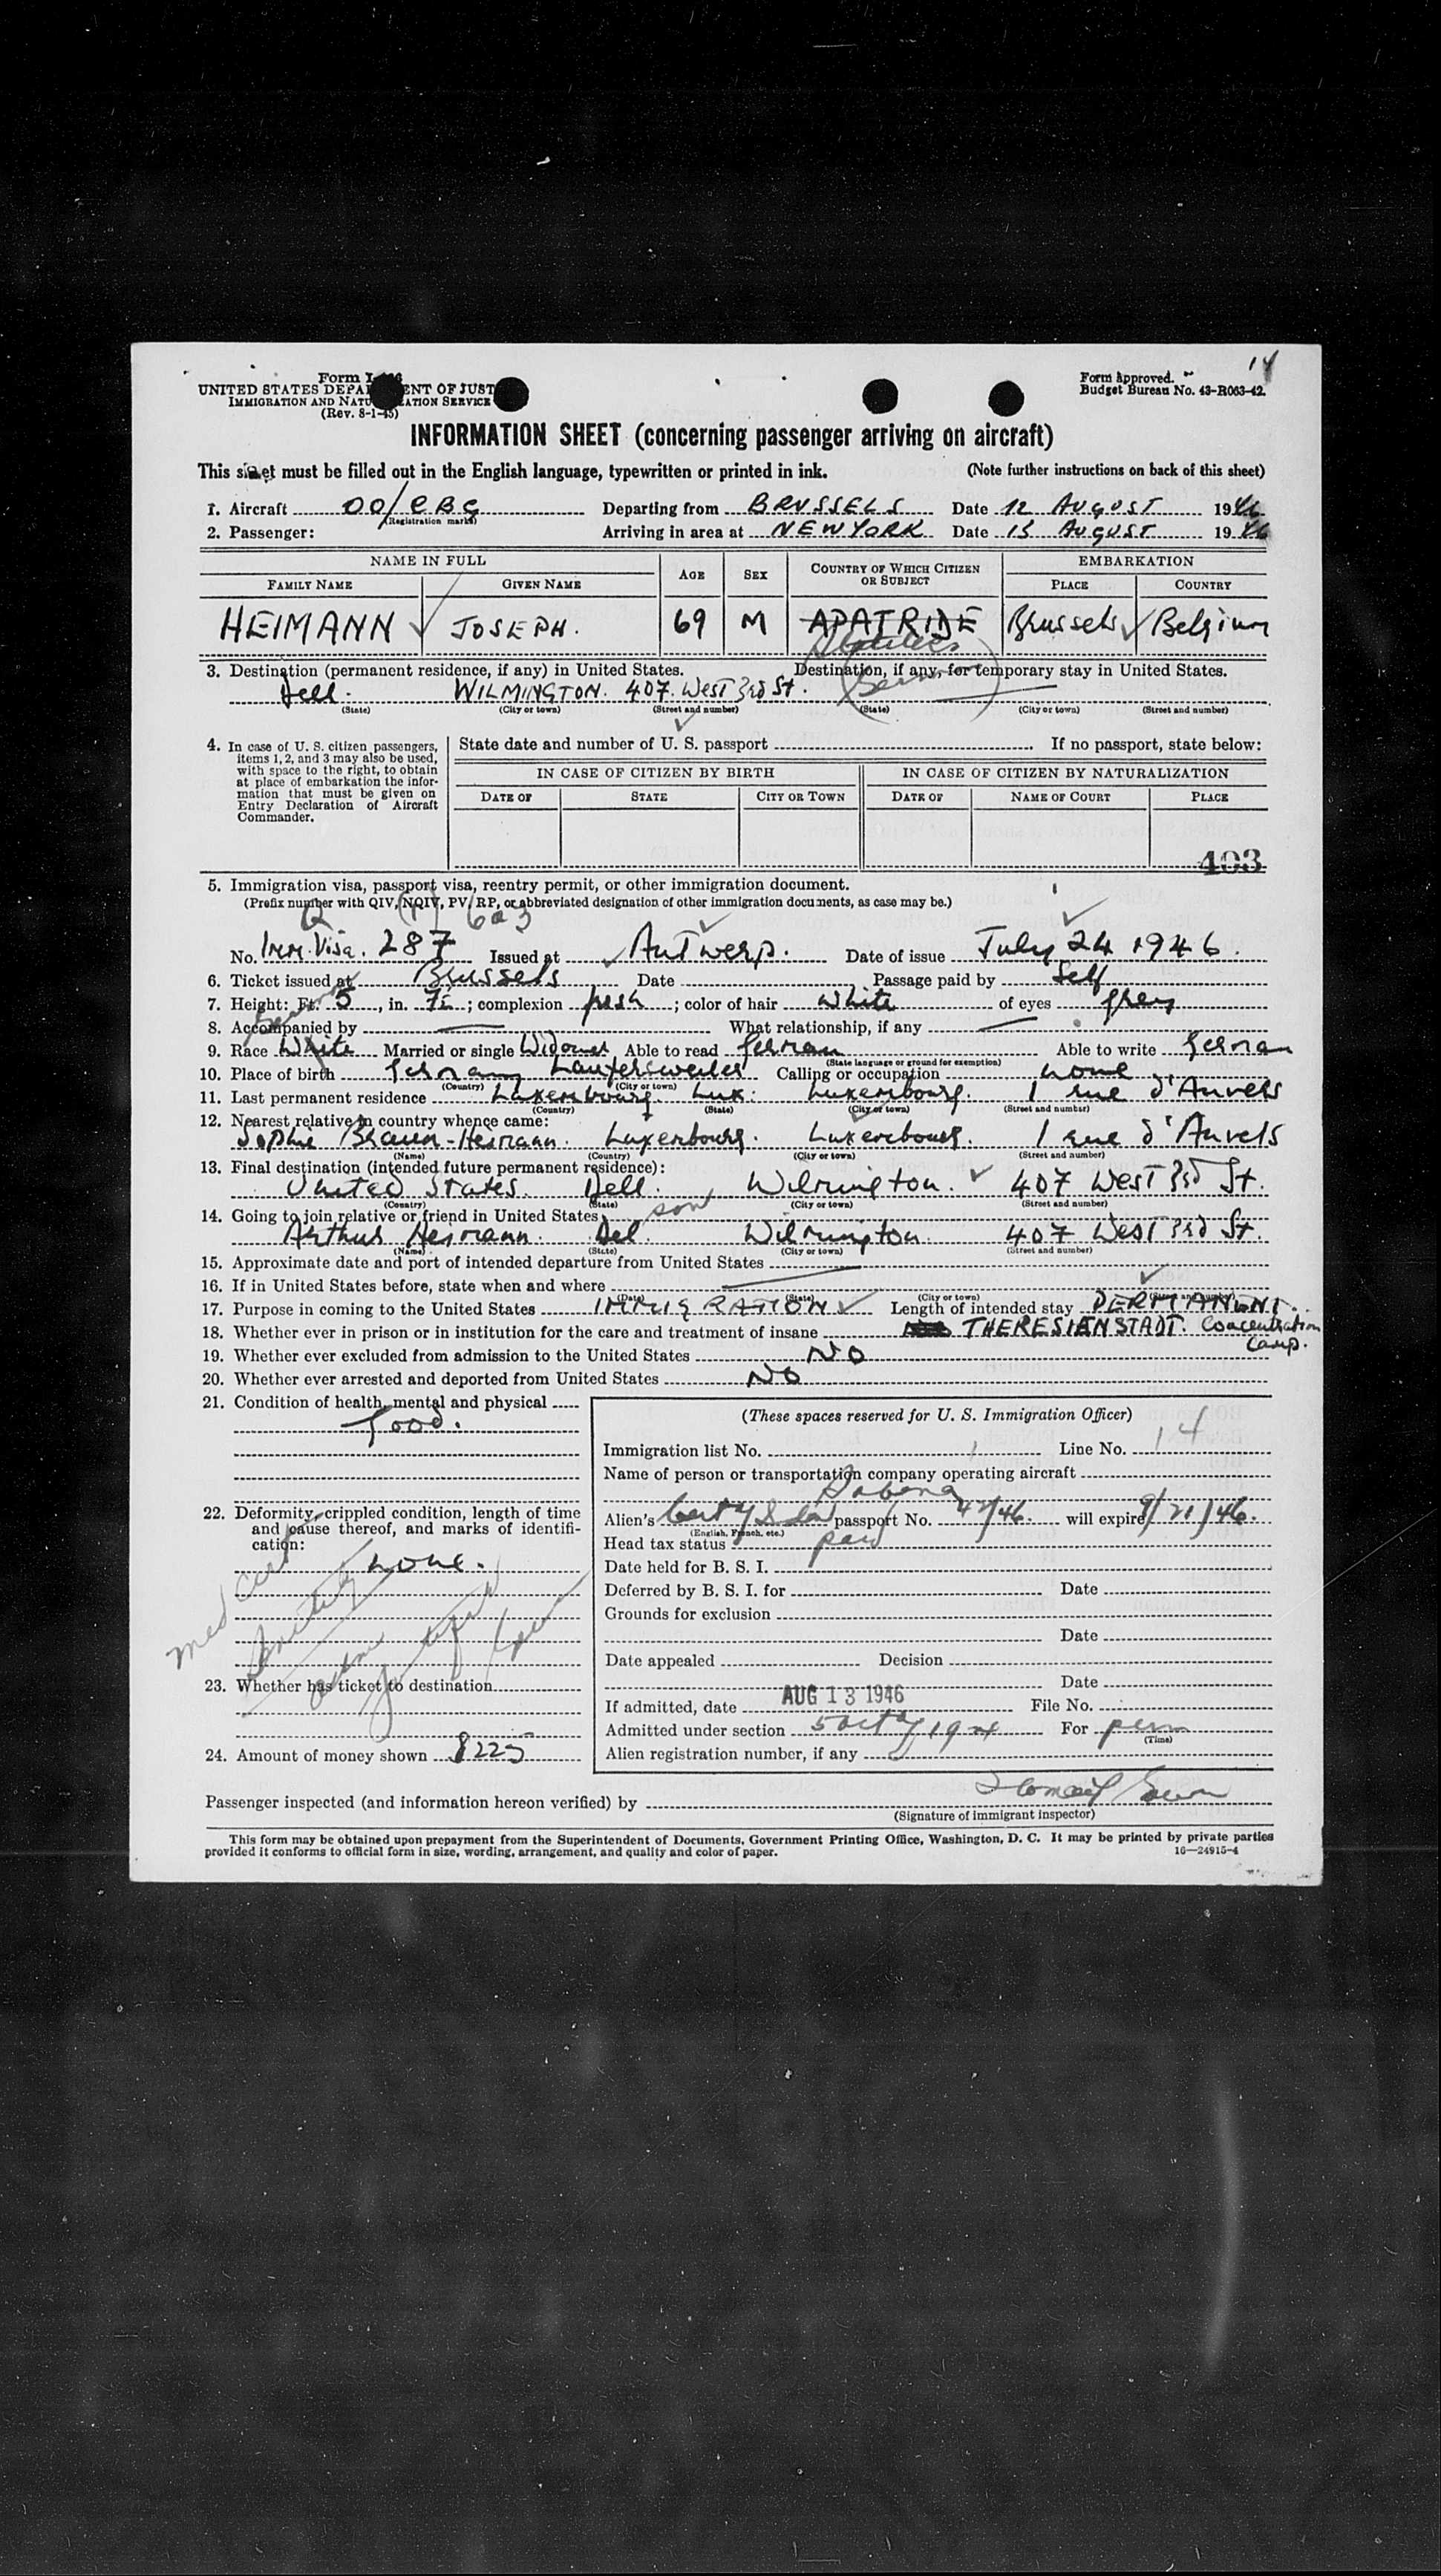 14
Form I-466
UNITED STATES DEPARTMENT OF JUSTICE
IMMIGRATION AND NATURALIZATION SERVICE
(Rev. 8-1-45)
Form approved.
Budget Bureau No. 43-R063-42.
INFORMATION SHEET (concerning passenger arriving on aircraft)
This sheet must be filled out in the English language, typewritten or printed in ink. (Note further instructions on back of this sheet)
1. Aircraft OO/CBG Departing from BRUSSELS Date 12 AUGUST 1946
(Registration marks)
2. Passenger: Arriving in area at NEW YORK Date 13 AUGUST 1946
NAME IN FULL AGE SEX COUNTRY OF WHICH CITIZEN OR SUBJECT EMBARKATION
FAMILY NAME GIVEN NAME PLACE COUNTRY
HEIMANN JOSEPH. 69 M APATRIDE Brussels Belgium
Stateless
3. Destination (permanent residence, if any) in United States. Destination, if any, for temporary stay in United States.
Dell. WILMINGTON. 407. West 3rd St.
(State) (City or town) (Street and number) (State) (City or town) (Street and number)
4. In case of U. S. citizen passengers, items 1, 2, and 3 may also be used, with space to the right, to obtain at place of embarkation the information that must be given on Entry Declaration of Aircraft Commander.
State date and number of U. S. passport If no passport, state below:
IN CASE OF CITIZEN BY BIRTH IN CASE OF CITIZEN BY NATURALIZATION
DATE OF STATE CITY OR TOWN DATE OF NAME OF COURT PLACE
403
5. Immigration visa, passport visa, reentry permit, or other immigration document.
(Prefix number with QIV, NQIV, PV, RP, or abbreviated designation of other immigration documents, as case may be.)
Q
No. Imm. Visa. 287 Issued at Antwerp. Date of issue July 24 1946.
6. Ticket issued at Brussels Date Passage paid by Self
7. Height: Ft. 5, in. ; complexion fresh; color of hair white of eyes grey
8. Accompanied by What relationship, if any
9. Race White Married or single Widower Able to read German Able to write German
(State language or ground for exemption)
10. Place of birth Germany Laufersweiler Calling or occupation none
(Country) (City or town)
11. Last permanent residence Luxembourg. Lux: Luxembourg. 1 rue d'Anvers
(Country) (State) (City or town) (Street and number)
12. Nearest relative in country whence came:
Sophie Braun-Heimann. Luxembourg. Luxembourg. 1 rue d'Anvers
(Name) (Country) (City or town) (Street and number)
13. Final destination (intended future permanent residence):
United States. Dell. Wilmington. 407 West 3rd St.
(Country) (State) (City or town) (Street and number)
14. Going to join relative or friend in United States: son
Arthur Heimann. Del. Wilmington. 407 West 3rd St.
(Name) (State) (City or town) (Street and number)
15. Approximate date and port of intended departure from United States
16. If in United States before, state when and where
(Date) (State) (City or town) (Street and number)
17. Purpose in coming to the United States IMMIGRATION Length of intended stay PERMANENT.
18. Whether ever in prison or in institution for the care and treatment of insane THERESIENSTADT. Concentration Camp.
19. Whether ever excluded from admission to the United States NO
20. Whether ever arrested and deported from United States NO
21. Condition of health, mental and physical
good.
22. Deformity, crippled condition, length of time and cause thereof, and marks of identification:
none.
med cert
23. Whether has ticket to destination
24. Amount of money shown $225
(These spaces reserved for U. S. Immigration Officer)
Immigration list No. 1 Line No. 14
Name of person or transportation company operating aircraft
Sabena
Alien's passport No. 42/46. will expire 9/21/46.
(English, French, etc.)
Head tax status paid
Date held for B. S. I.
Deferred by B. S. I. for Date
Grounds for exclusion
Date
Date appealed Decision
Date
If admitted, date AUG 13 1946 File No.
Admitted under section 5 act of 1924 For perm
(Time)
Alien registration number, if any
Passenger inspected (and information hereon verified) by
(Signature of immigrant inspector)
This form may be obtained upon prepayment from the Superintendent of Documents, Government Printing Office, Washington, D. C. It may be printed by private parties
provided it conforms to official form in size, wording, arrangement, and quality and color of paper. 16—24915-4